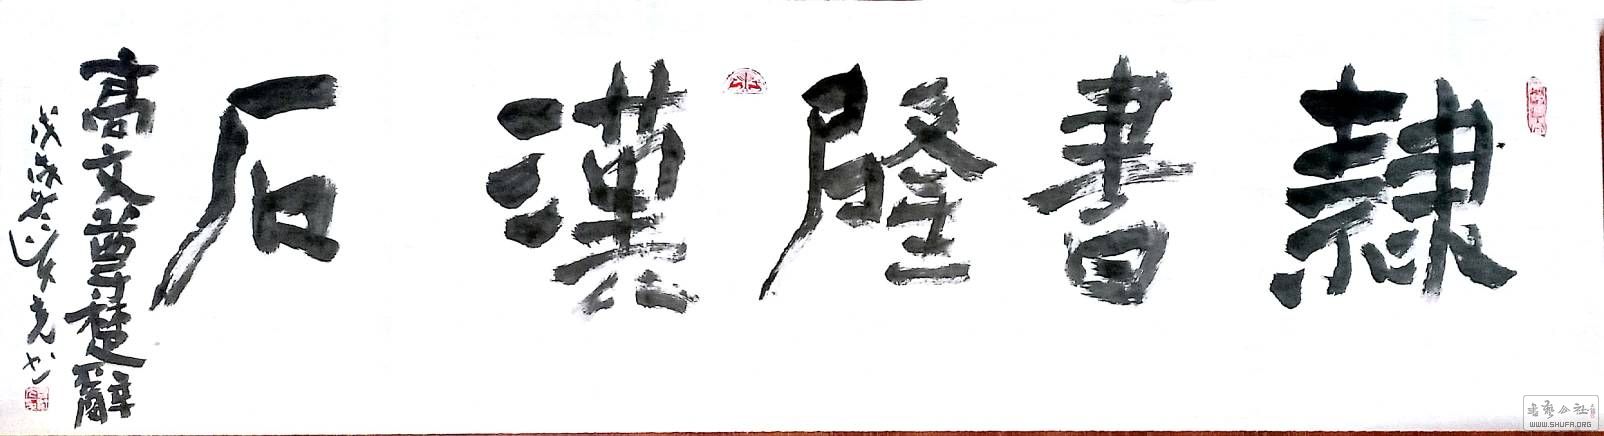 隸書隆漢石
高文尊楚辭
戊戌
书艺公社
WWW.SHUFA.ORG